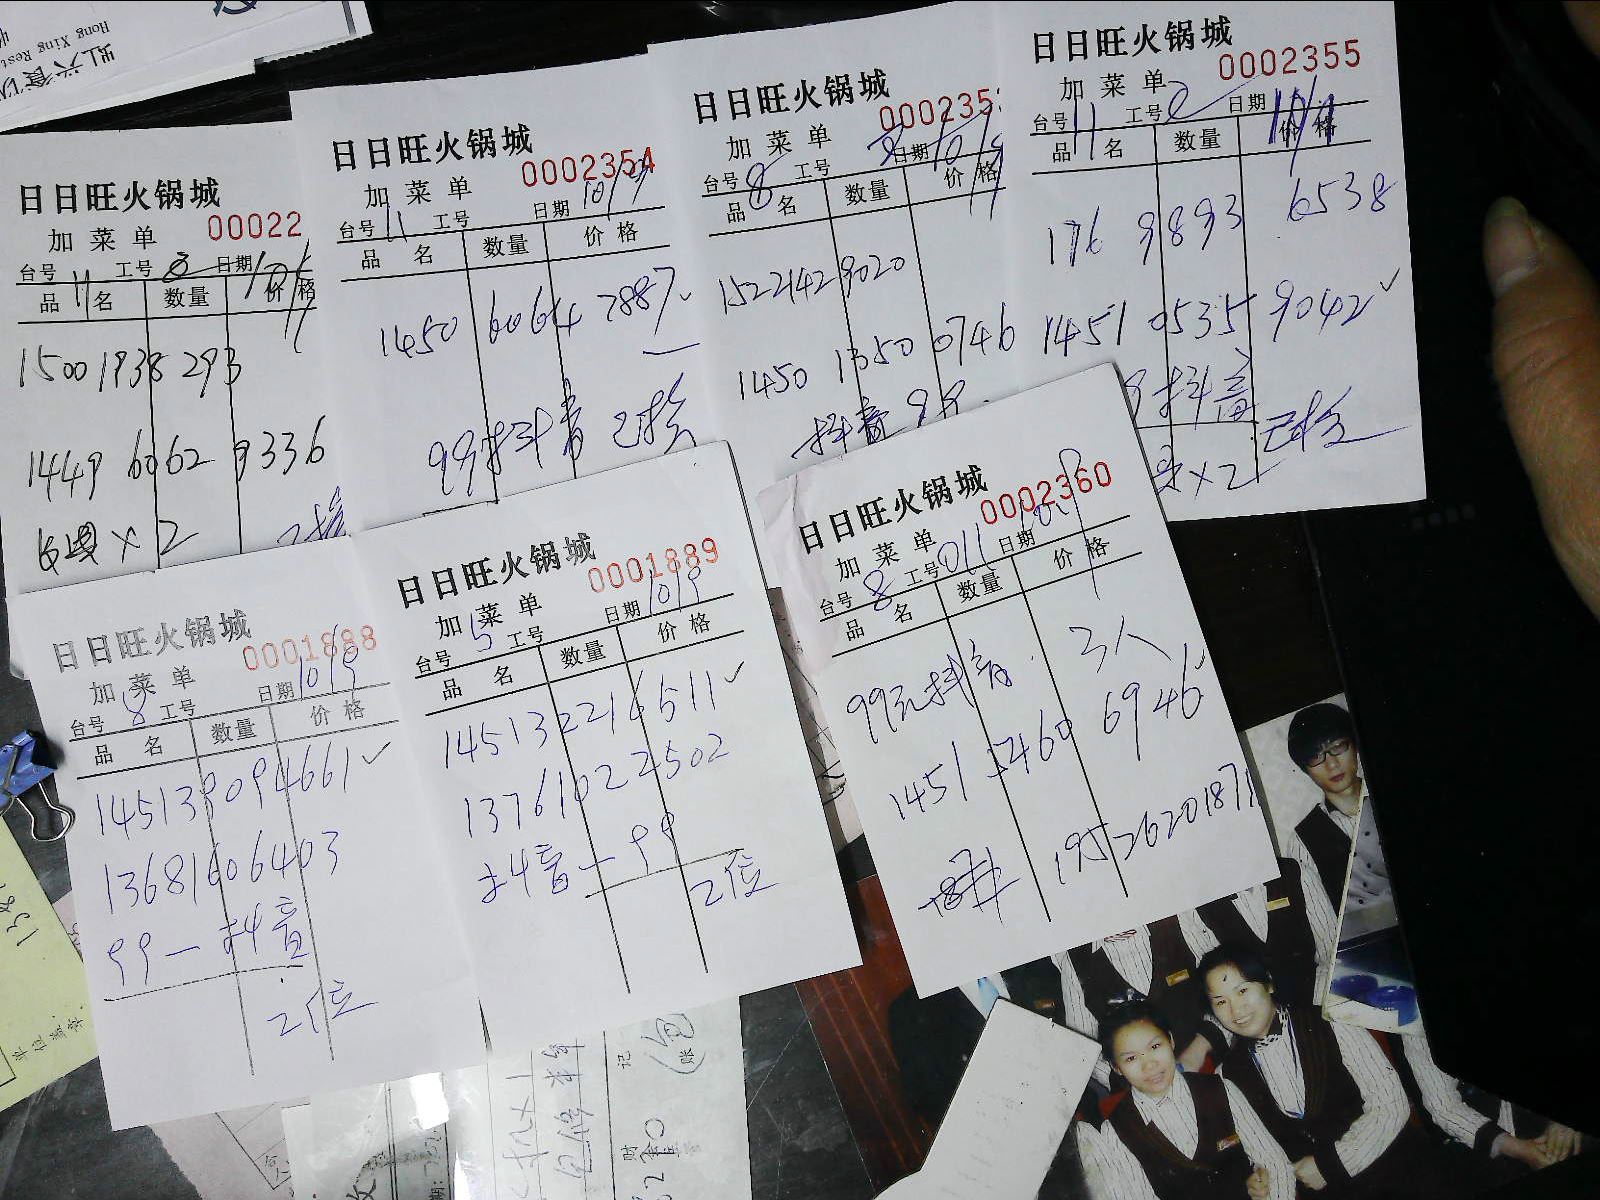 Hong Xing Rest
日日旺火锅城
00022
加菜单
台号 11 工号 8 日期 10/9
品名 数量 价格
1500 1938 293
1449 6062 9336
× 2
日日旺火锅城
0002354
加菜单
台号 11 工号 日期 10/9
品名 数量 价格
1450 6064 7887
99抖音 已接
日日旺火锅城
000235
加菜单
台号 8 工号 日期 10/9
品名 数量 价格
1522142 9020
1450 1350 0746
抖音 99
日日旺火锅城
0002355
加菜单
台号 11 工号 日期
品名 数量 价格
176 9893 6538
1451 0535 9042
9抖音
× 2
日日旺火锅城
0001888
加菜单
台号 8 工号 日期 10/9
品名 数量 价格
145139094661
13681606403
99一抖音
2位
日日旺火锅城
0001889
加菜单
台号 5 工号 日期 10/9
品名 数量 价格
145132216511
13761022502
抖音一99
2位
日日旺火锅城
0002360
加菜单
台号 8 工号 011 日期 10.9
品名 数量 价格
99元抖音. 3人
1451 5460 6946
19526201871
单位盖章